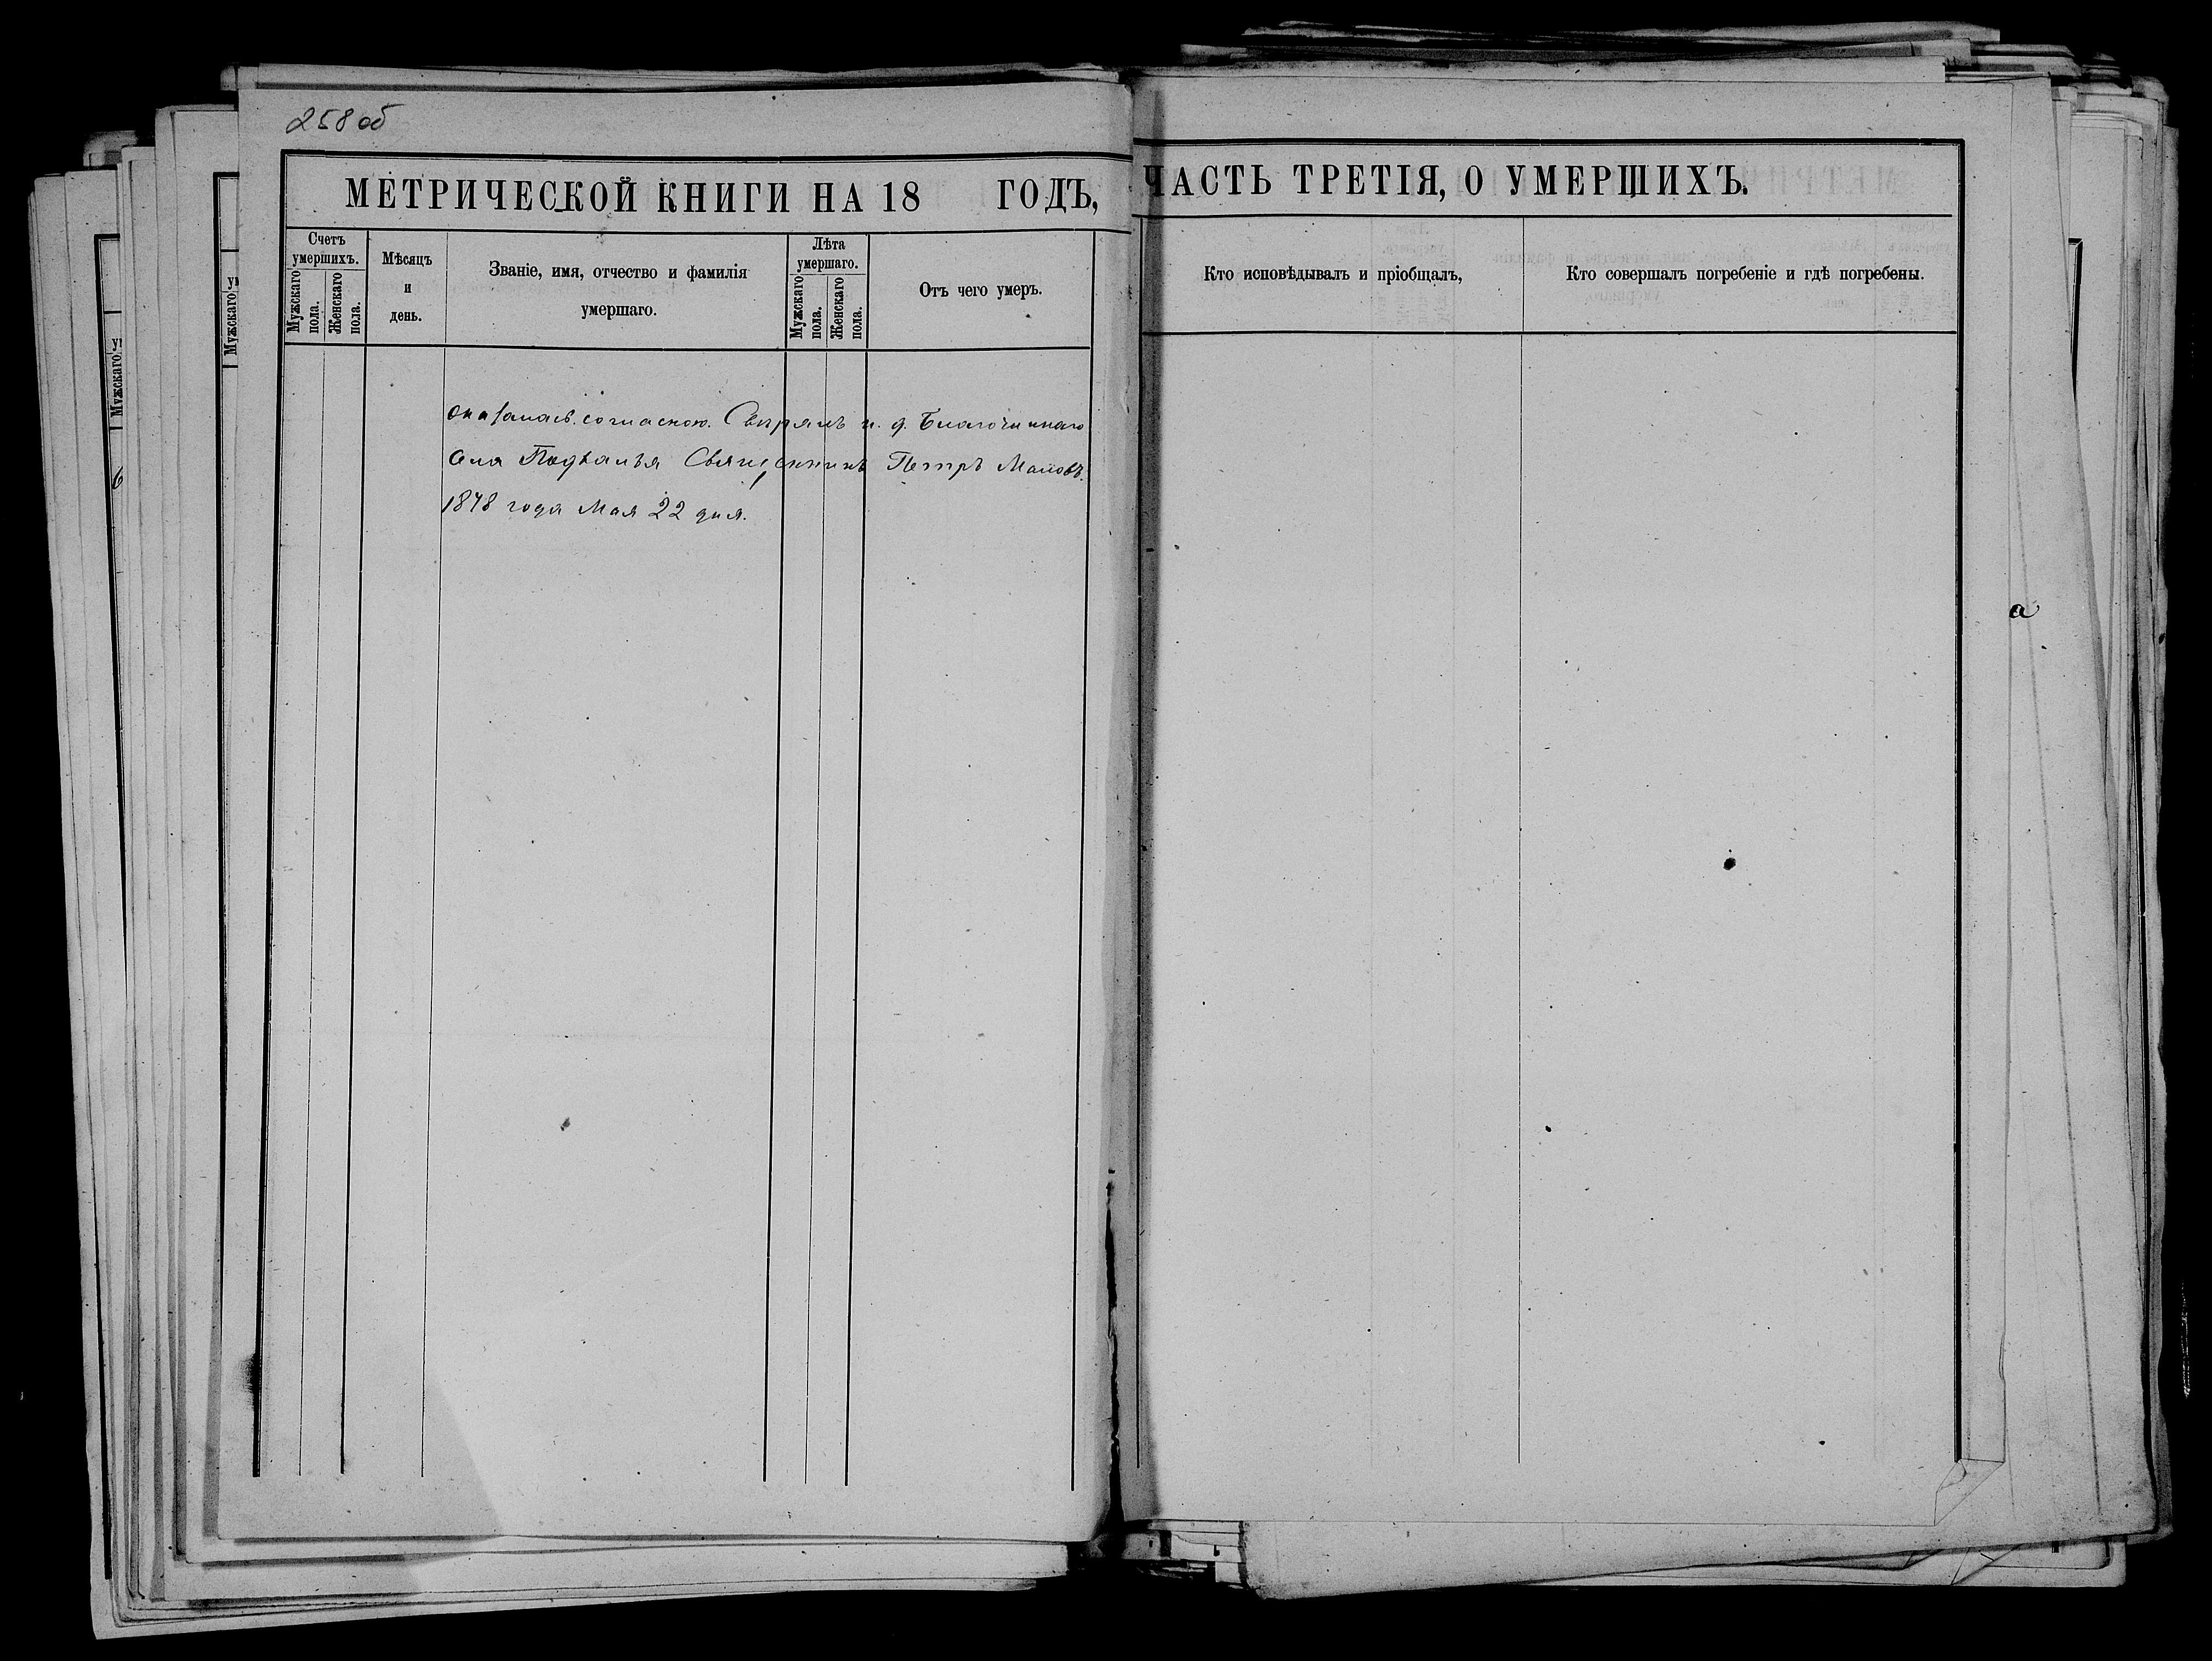 258 об
МЕТРИЧЕСКОЙ КНИГИ НА 18 ГОДЪ,
Счетъ умершихъ.
Мужскаго пола.
Женскаго пола.
Мѣсяцъ и день.
Званіе, имя, отчество и фамилія умершаго.
Лѣта умершаго.
Мужскаго пола.
Женскаго пола.
Отъ чего умеръ.
оказалась согласною. Свѣрялъ и. д. Благочиннаго
села Священникъ Петръ
1878 года Мая 22 дня.
ЧАСТЬ ТРЕТІЯ, О УМЕРШИХЪ.
Кто исповѣдывалъ и пріобщалъ,
Кто совершалъ погребеніе и гдѣ погребены.
а
Мужскаго
Мужскаго